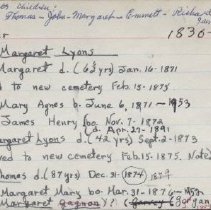 children
Thomas - John - Margaret - Emmett - Richard
1830-
Margaret Lyons
Margaret d. (62 yrs) Jan. 16-1871
d to new cemetery Feb. 15-1875
Mary Agnes b. June 6, 1871 - 1953
James Henry bo. Nov. 7-1872
(d. Apr. 27-1891)
Margaret Lyons d. (42 yrs) Sept. 2-1873
ved to new cemetery Feb. 15-1875. Note
Thomas d (87 yrs) Dec. 31-(1874) 1874
Margaret Mary bo. Mar. 31-1876 - 1953
Margaret